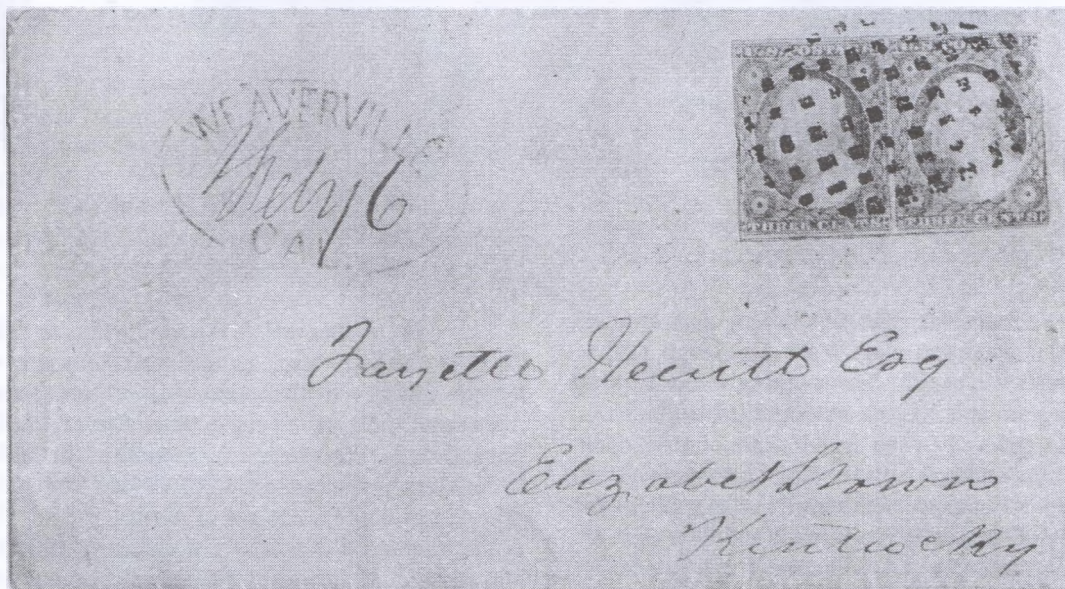 WEAVERVILLE
Feby 6
CAL.
THREE CENTS
THREE CENTS
Fayette Hewitt Esq
Elizabethtown
Kentucky